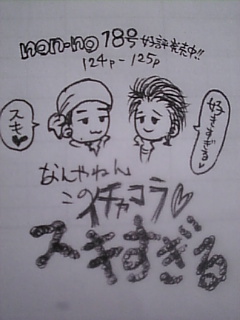 non-no 18号 好評発売中!!
124p-125p
スキ♥
好きすぎる♡
なんやねん
このイチャコラ♡
スキすぎる